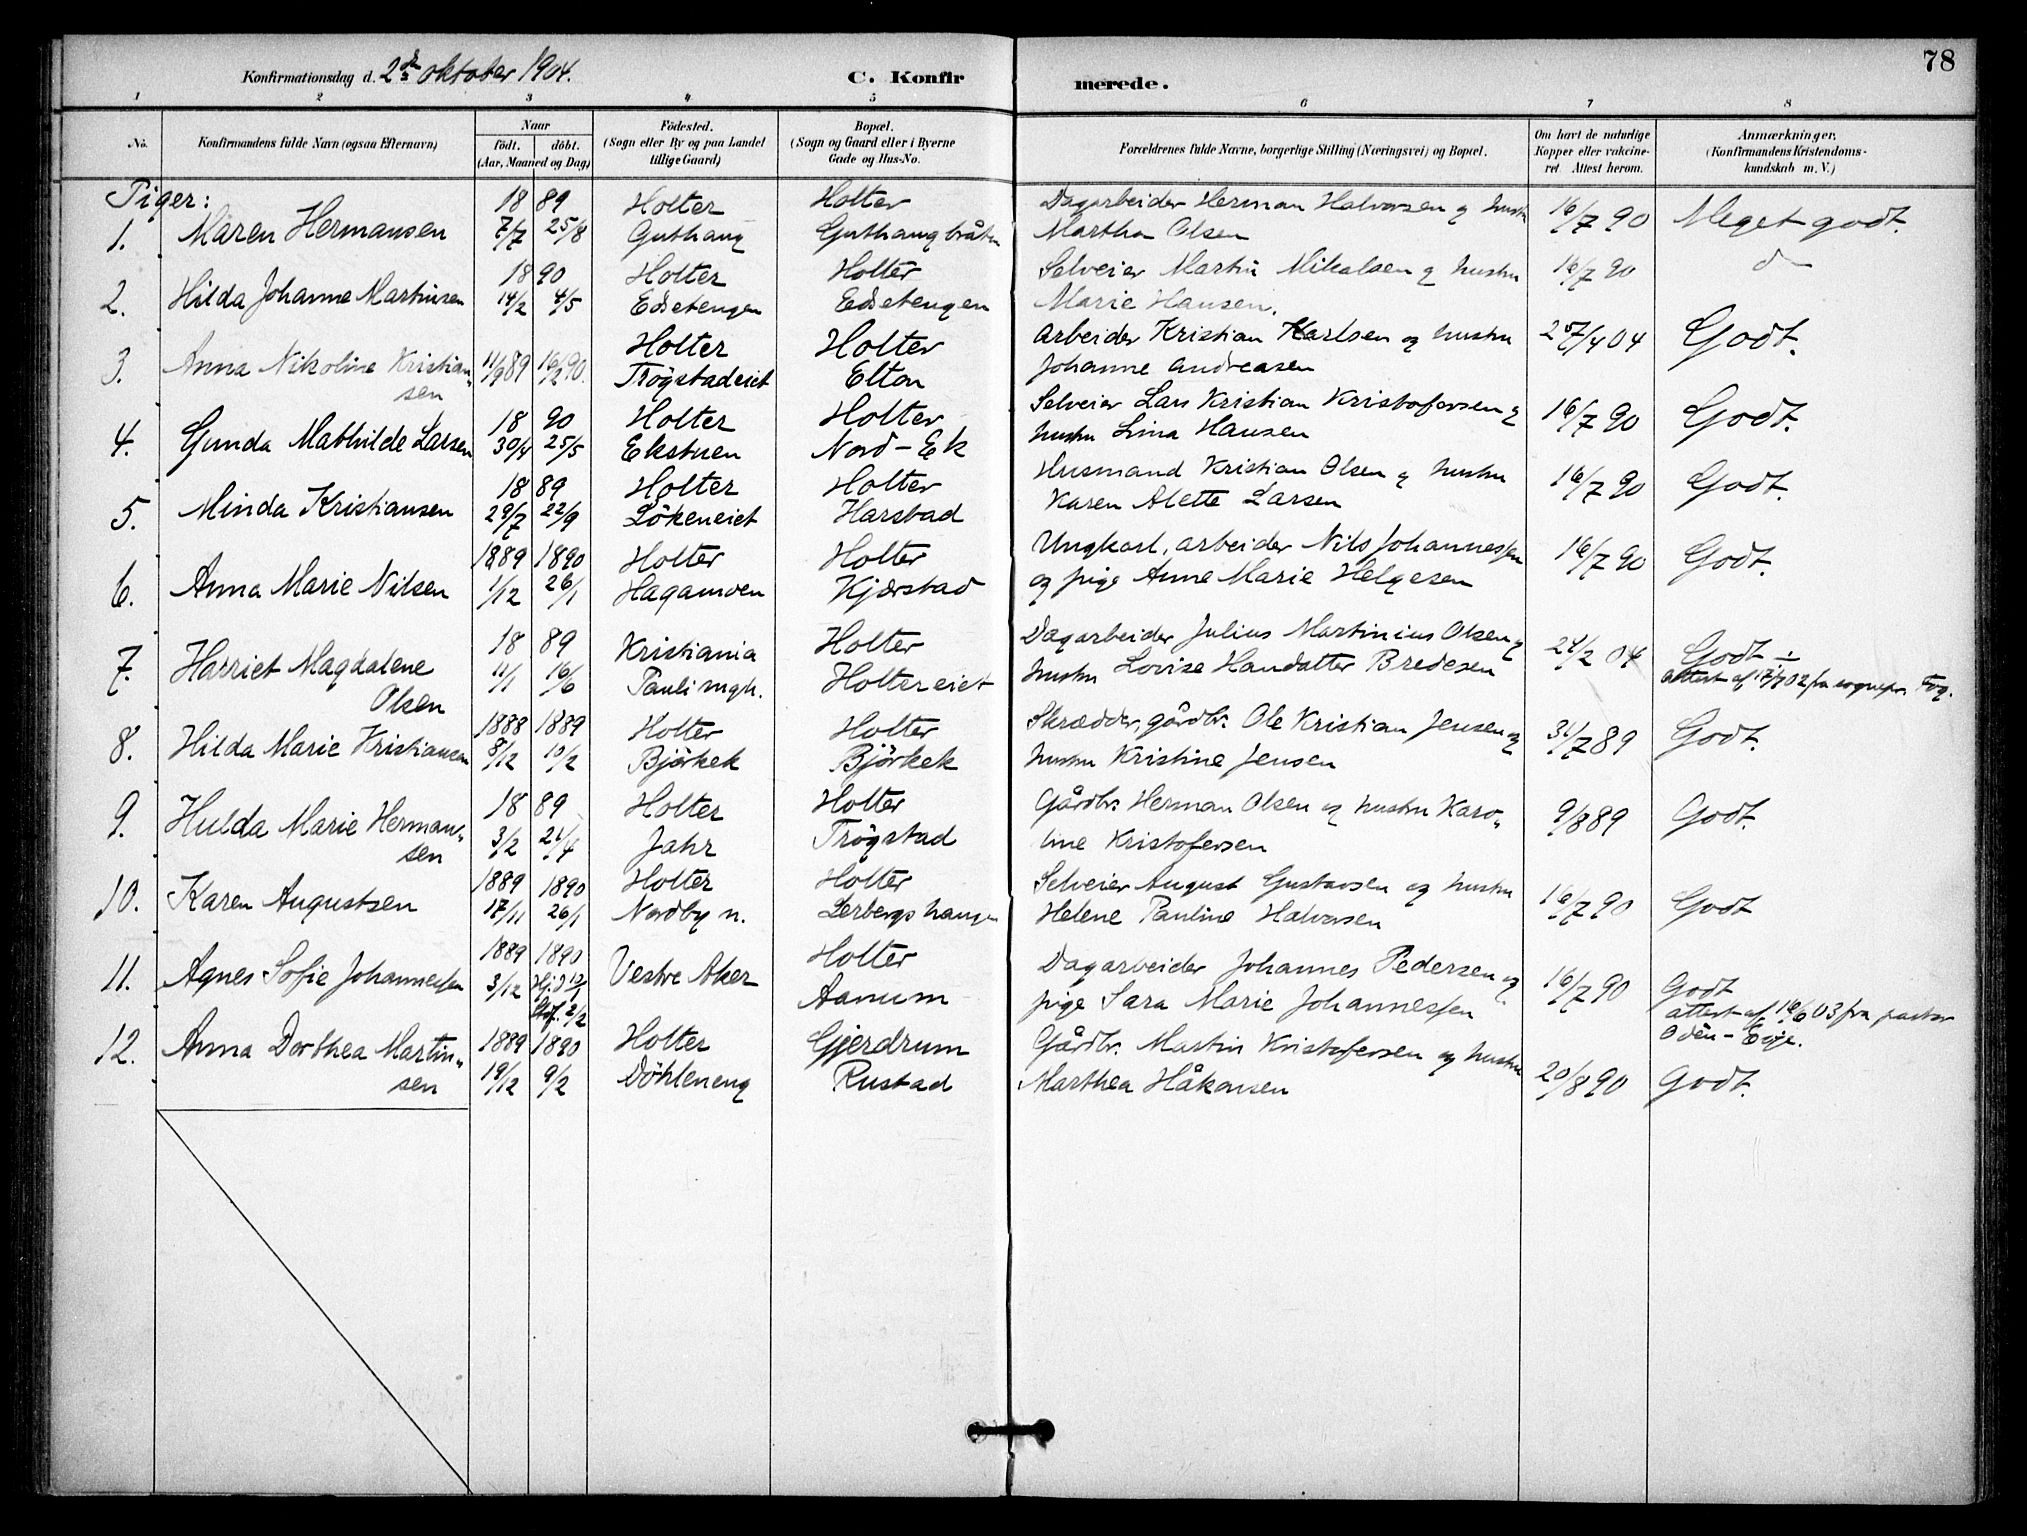 78
Konfirmationsdag d. 2den oktober 1904. C. Konfirmerede.
1 2 3 4 5 6 7 8
No. Konfirmandens fulde Navn (ogsaa Efternavn) Naar födt. döbt. (Aar, Maaned og Dag) Födested. (Sogn eller By og paa Landet tillige Gaard) Bopæl. (Sogn og Gaard eller i Byerne Gade og Hus-No. Forældrenes fulde Navne, borgerlige Stilling (Næringsvei) og Bopæl. Om havt de naturlige Kopper eller vakcineret Attest herom. Anmærkninger. (Konfirmandens Kristendomskundskab m. V.)
Piger: 18 89 Holter Holter Dagarbeider Herman Halvorsen og hustru 16/7 90 Meget godt.
1. Maren Hermansen 7/7 25/8 Guthaug Guthaugbråten Marthea Olsen
18 90 Holter Holter Selveier Martin Mikalsen og hustru 16/7 90 do
2. Hilda Johanne Martinsen 14/2 4/5 Edsetengen Edsetengen Marie Hansen.
Holter Holter Arbeider Kristian Karlsen og hustru 25/4 04 Godt.
3. Anna Nikoline Kristian- 11/9 89 16/2 90. Trögstadeiet Elton Johanne Andreasen
sen
18 90 Holter Holter Selveier Lars Kristian Kristofersen og 16/7 90 Godt.
4. Gunda Mathilde Larsen 30/4 25/5 Ekstuen Nord-Ek hustru Lina Hansen
18 89 Holter Holter Husmand Kristian Olsen og hustru 16/7 90 Godt.
5. Minda Kristiansen 29/7 22/9 Lökeneiet Harstad Karen Alette Larsen
1889 1890 Holter Holter Ungkarl, arbeider Nils Johannessen 16/7 90 Godt.
6. Anna Marie Nilsen 1/12 26/1 Hagamoen Kjærstad og pige Anne Marie Helgesen
18 89 Kristiania Holter Dagarbeider Julius Martinius Olsen og 24/2 04 Godt
7. Harriet Magdalene 11/1 16/6 Pauli mgh. Holtereiet hustru Lovise Hansdatter Bredesen attest af 17/7 02 fra sognepr.
Olsen
1888 1889 Holter Holter Skrædder, gårdbr. Ole Kristian Jensen og 31/7 89 Godt.
8. Hilda Marie Kristiansen 8/12 10/2 Björkek Björkek hustru Kristine Jensen
18 89 Holter Holter Gårdbr. Herman Olsen og hustru Karo- 9/8 89 Godt.
9. Hulda Marie Herman- 3/2 21/4 Jahr Trögstad line Kristofersen
sen
1889 1890 Holter Holter Selveier August Gustavsen og hustru 16/7 90 Godt
10. Karen Augustsen 17/11 26/1 Nordby n. Lerbergshaugen Helene Pauline Halvorsen
1889 1890 Vestre Aker Holter Dagarbeider Johannes Pedersen og 16/7 90 Godt
11. Agnes Sofie Johannessen 3/12 Hj. D 12/1 Aamum pige Sara Marie Johannessen attest af 16/6 03 fra pastor
Stf. 2/2
12. Anna Dorthea Martin- 1889 1890 Holter Gjerdrum Gårdbr. Martin Kristofersen og hustru 20/8 90 Godt.
sen 19/12 9/2 Döhleneng Rustad Marthea Håkonsen